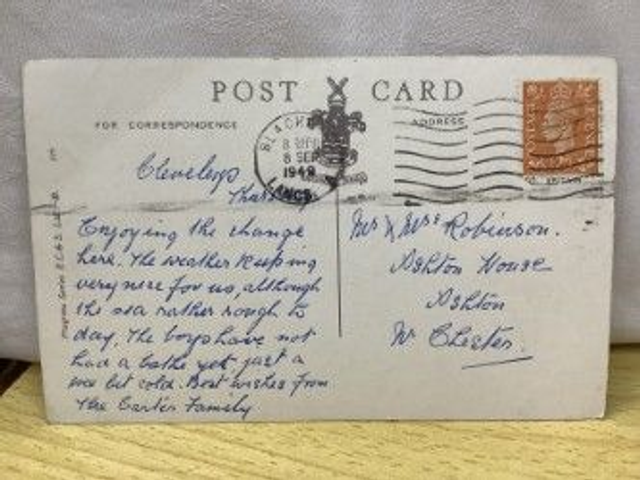 POST CARD
FOR CORRESPONDENCE
ADDRESS
8 SEP
1949
LANCS
Cleveleys
Enjoying the change
here. The weather keeping
very nice for us, although
the sea rather rough to
day. The boys have not
had a bathe yet, just a
wee bit cold. Best wishes from
the Carter Family
Mr & Mrs Robinson.
Ashton House
Ashton
Nr Chester.